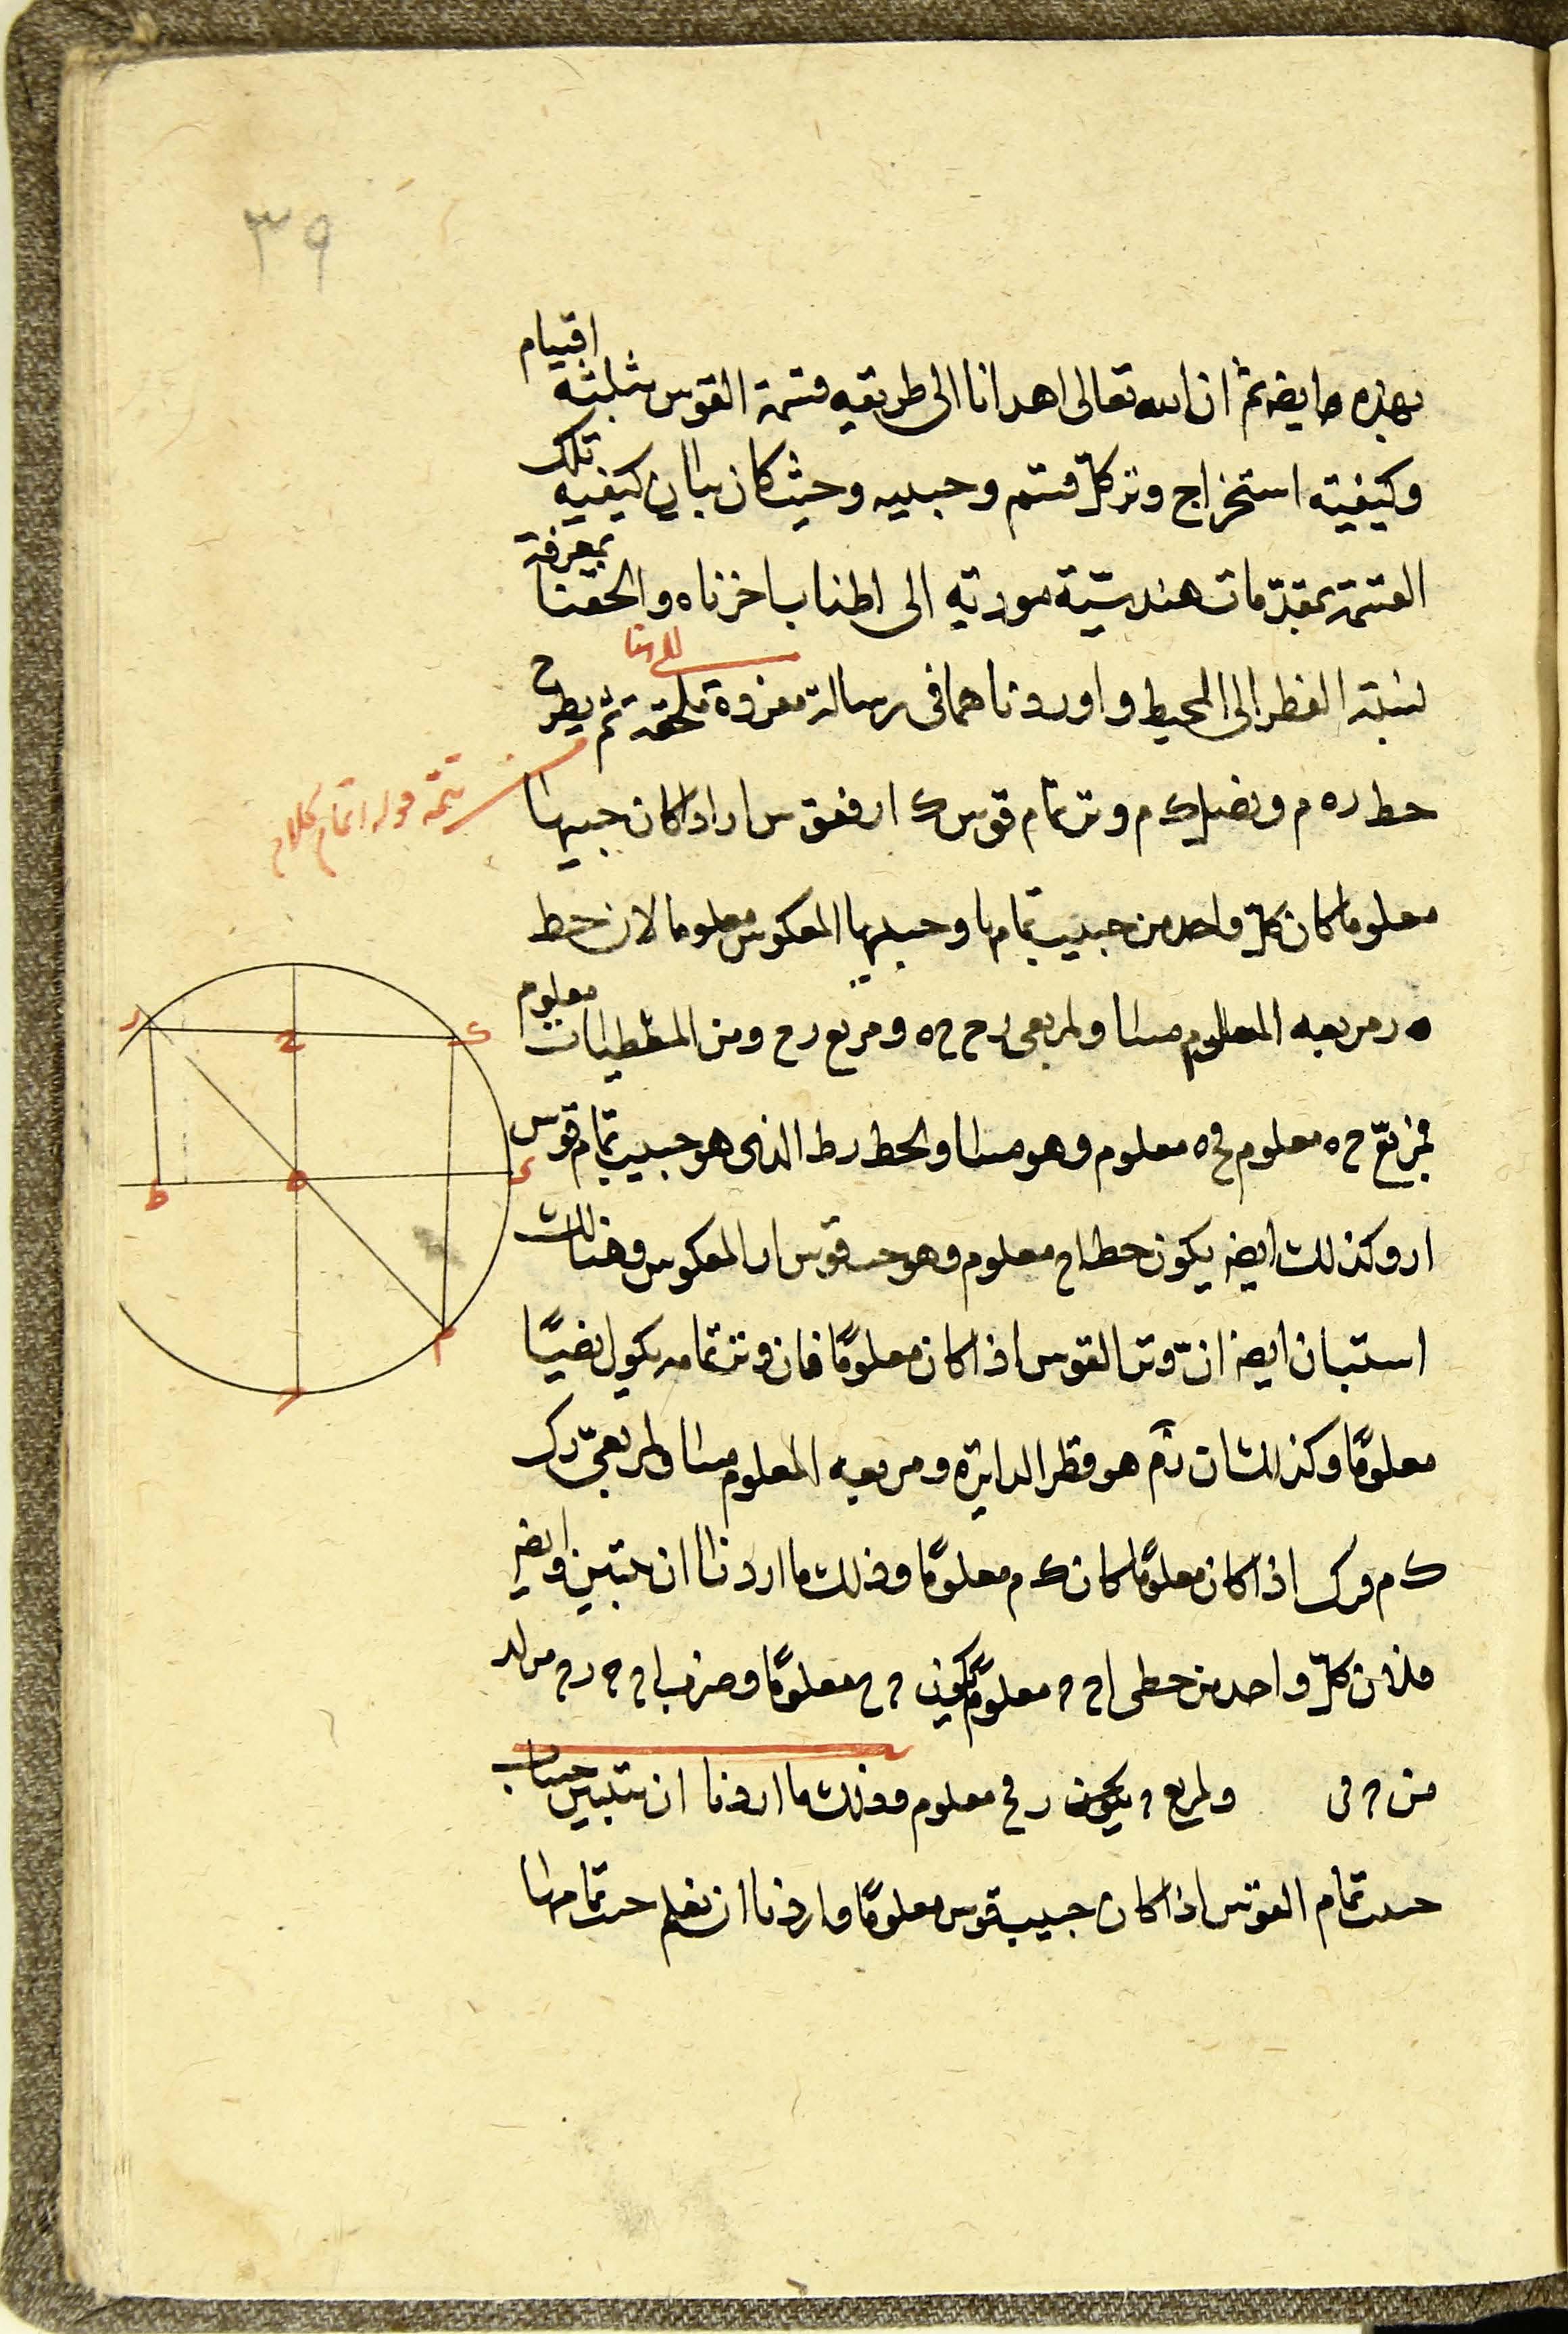 ٣٩
بهذه ما ايضه ثم ان الله تعالى اهدانا الى طريقه قسمة القوس بثلثه اقسام
وكيفيته استخراج وتر كل قسم وجيبه وحيث كان بيان كيفيه تلك
القسمة بمقدمات هندسيّة مودتيه الى اطناب اخرناه والحقنا بمعرفة
نسبة القطر الى المحيط واوردناهما فى رسالة مفردة ملحقة ثم يطرح
خط ره م ونصل ك م وتر تمام قوس ك ار فقوس ار اذا كان جيبها
معلوما كان كل واحد من جيب تمامها وجيبها المعكوس معلوما لان خط
ه ر مربعه المعلوم مساا ولمربعى رح ح ه ومربع رح ومن المعطيات معلوم
فمربع ح ه معلوم فح ه معلوم وهو مساا ولخط رط الذى هو جيب تمام قوس
ار وكذلك ايضه يكون خط اح معلوم وهو حب قوس ار المعكوس وهنالك
استبان ايضه انّ وتر القوس اذا كان معلومًا فان وتر تمامه يكون ايضًا
معلومًا وكذلك ان رم هو قطر الدايرة ومربعه المعلوم مساا ولمربعى رك
ك م ورك اذا كان معلومًا كان ك م معلومًا وذلك ما اردنا ان نتبين وايضه
فلان كل واحد من خطى اح ح معلوم يكون ح ح معلومًا وضرب اح ح ح
من ح فى ولمربع ح يكون رح معلوم وذلك ما اردنا ان نتبين حساب
حب تمام القوس اذا كان جيب قوس معلومًا واردنا ان نعلم حب تمامها
تتمة قوله اتمام كلام
ر
ح
ك
ط
ه
د
م